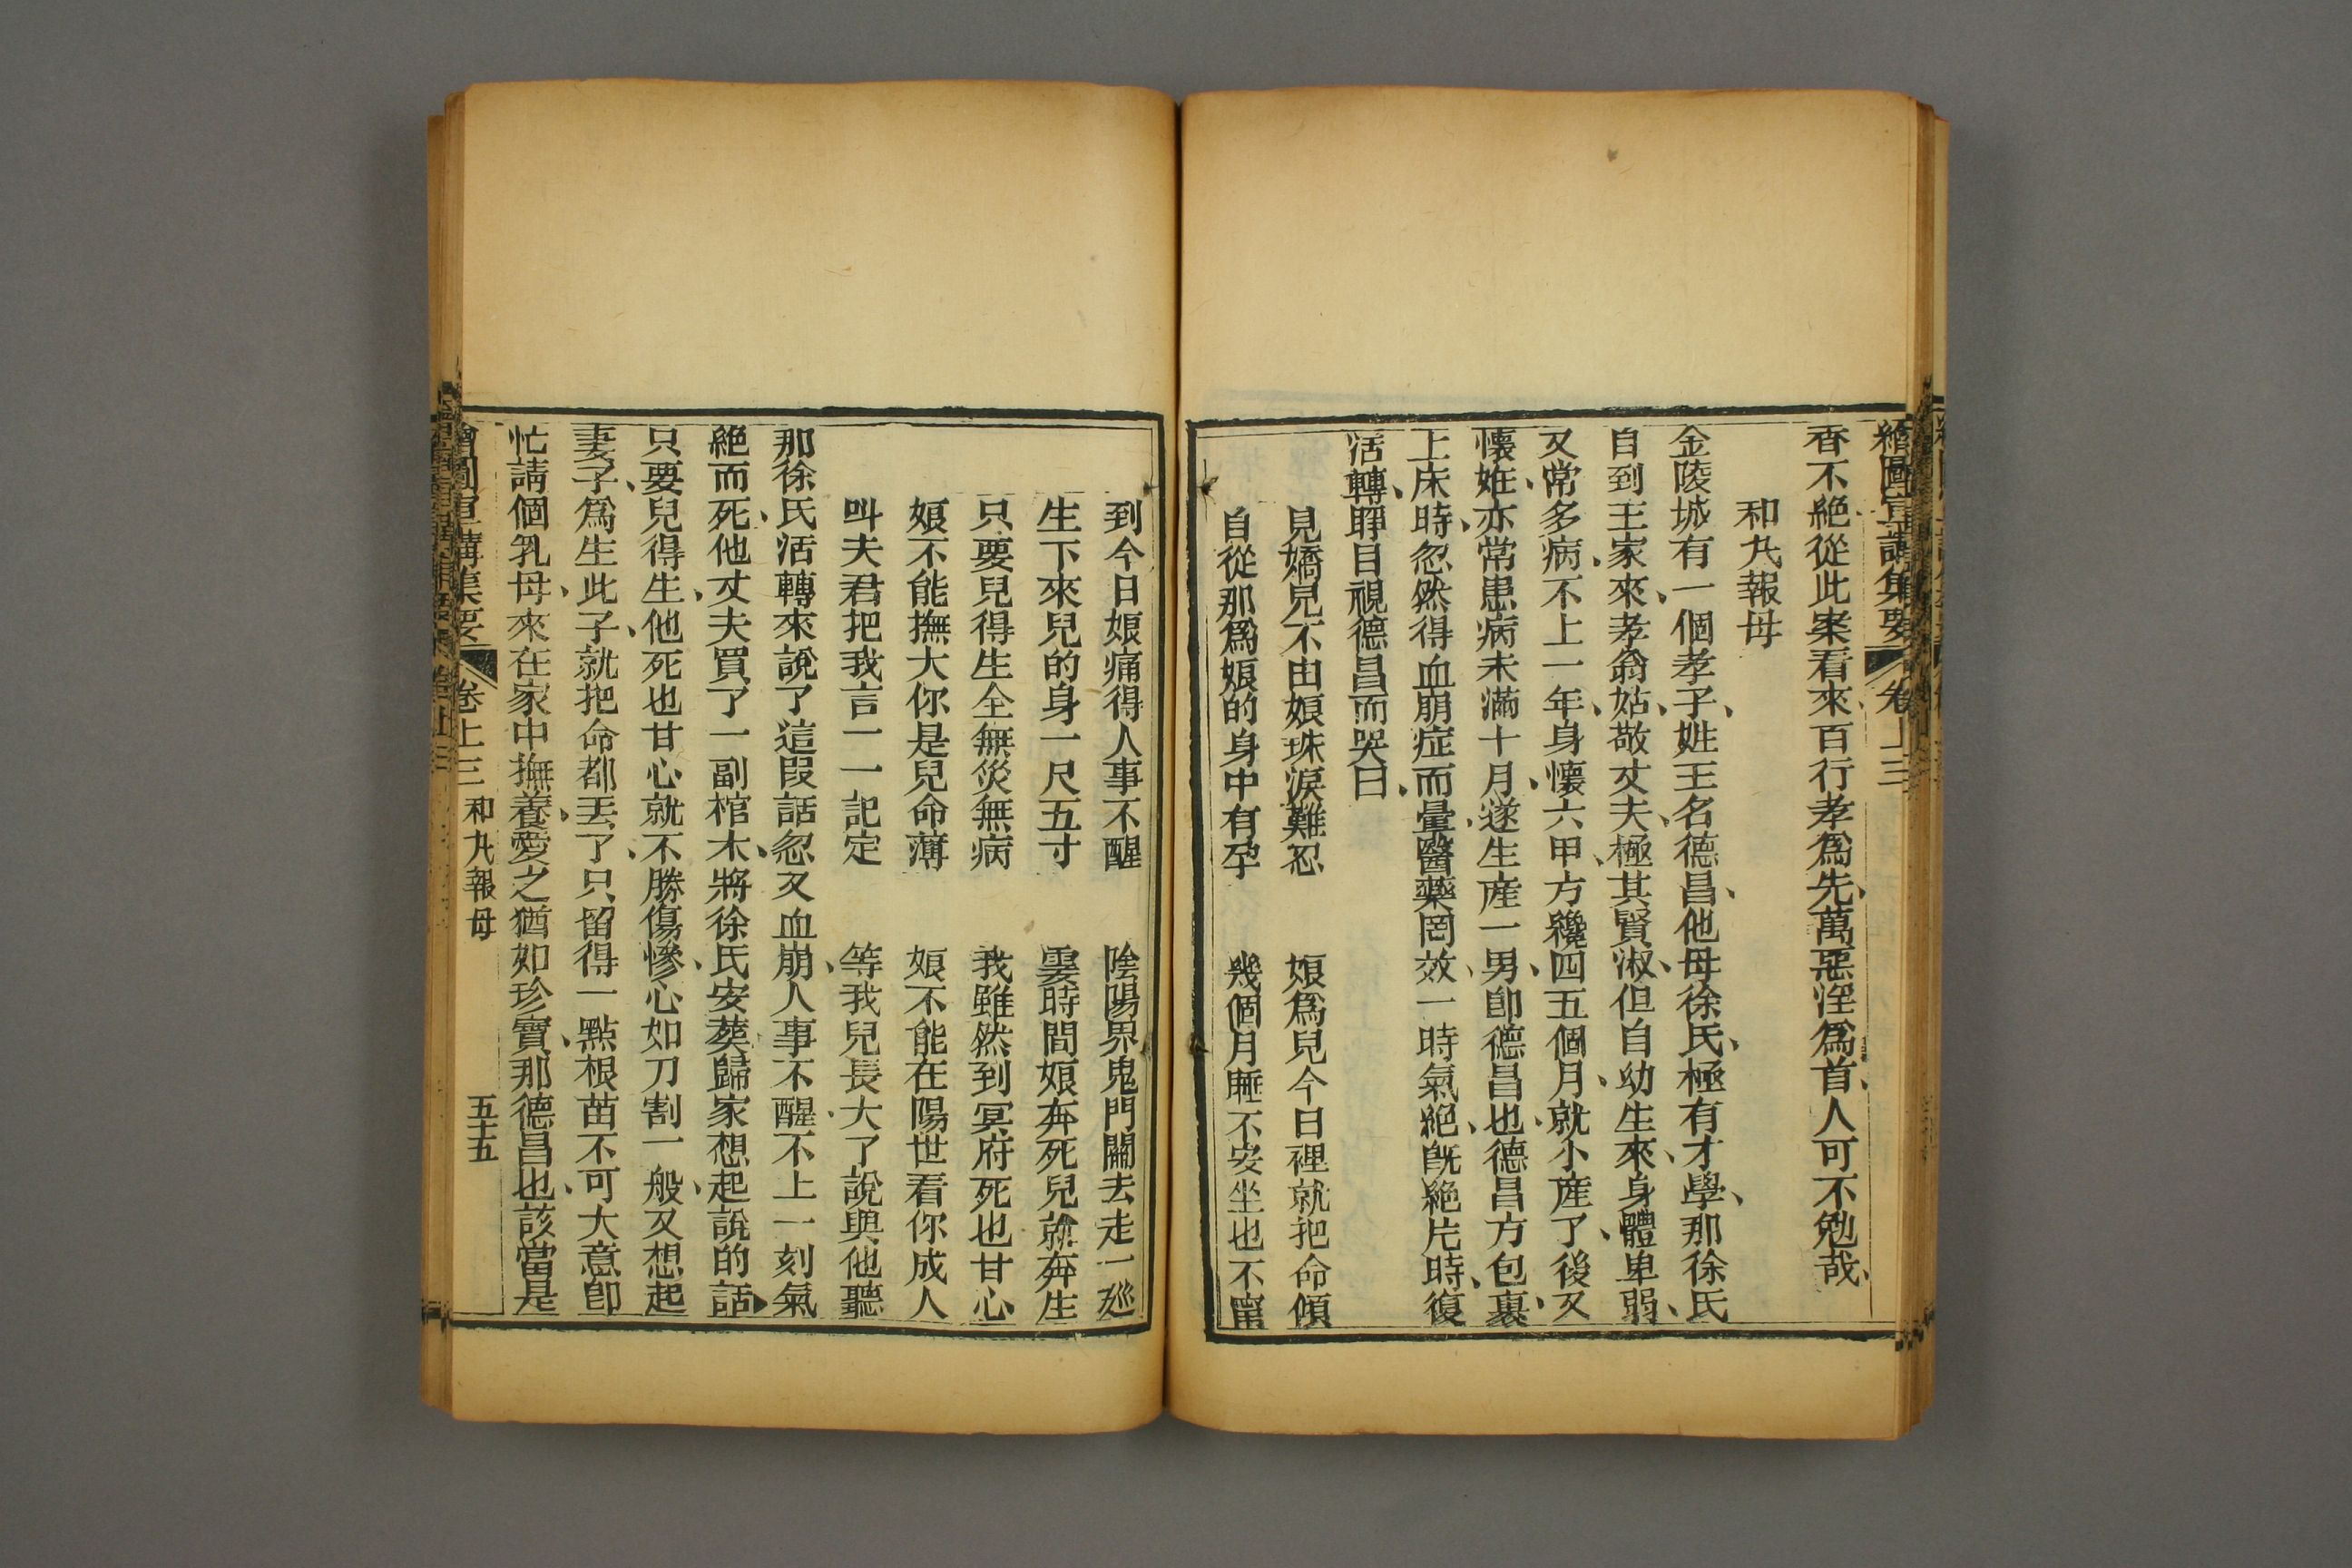 繪圖宣講集要 卷上三
香不絕從此案看來百行孝爲先萬惡淫爲首人可不勉哉
和丸報母
金陵城有一個孝子姓王名德昌他母徐氏極有才學那徐氏
自到王家來孝翁姑敬丈夫極其賢淑但自幼生來身體卑弱
又常多病不上一年身懷六甲方纔四五個月就小產了後又
懷姙亦常患病未滿十月遂生產一男卽德昌也德昌方包裹
上床時忽然得血崩症而暈醫藥罔效一時氣絕旣絕片時復
活轉睜目視德昌而哭曰
見嬌兒不由娘珠淚難忍 娘爲兒今日裡就把命傾
自從那爲娘的身中有孕 幾個月睡不安坐也不甯
到今日娘痛得人事不醒 陰陽界鬼門關去走一廵
生下來兒的身一尺五寸 霎時間娘奔死兒就奔生
只要兒得生全無災無病 我雖然到冥府死也甘心
娘不能撫大你是兒命薄 娘不能在陽世看你成人
叫夫君把我言一一記定 等我兒長大了說與他聽
那徐氏活轉來說了這叚話忽又血崩人事不醒不上一刻氣
絕而死他丈夫買了一副棺木將徐氏安葬歸家想起說的話
只要兒得生他死也甘心就不勝傷慘心如刀割一般又想起
妻子爲生此子就把命都丟了只留得一點根苗不可大意卽
忙請個乳母來在家中撫養愛之猶如珍寶那德昌也該當是
繪圖宣講集要 卷上三 和丸報母 五十五